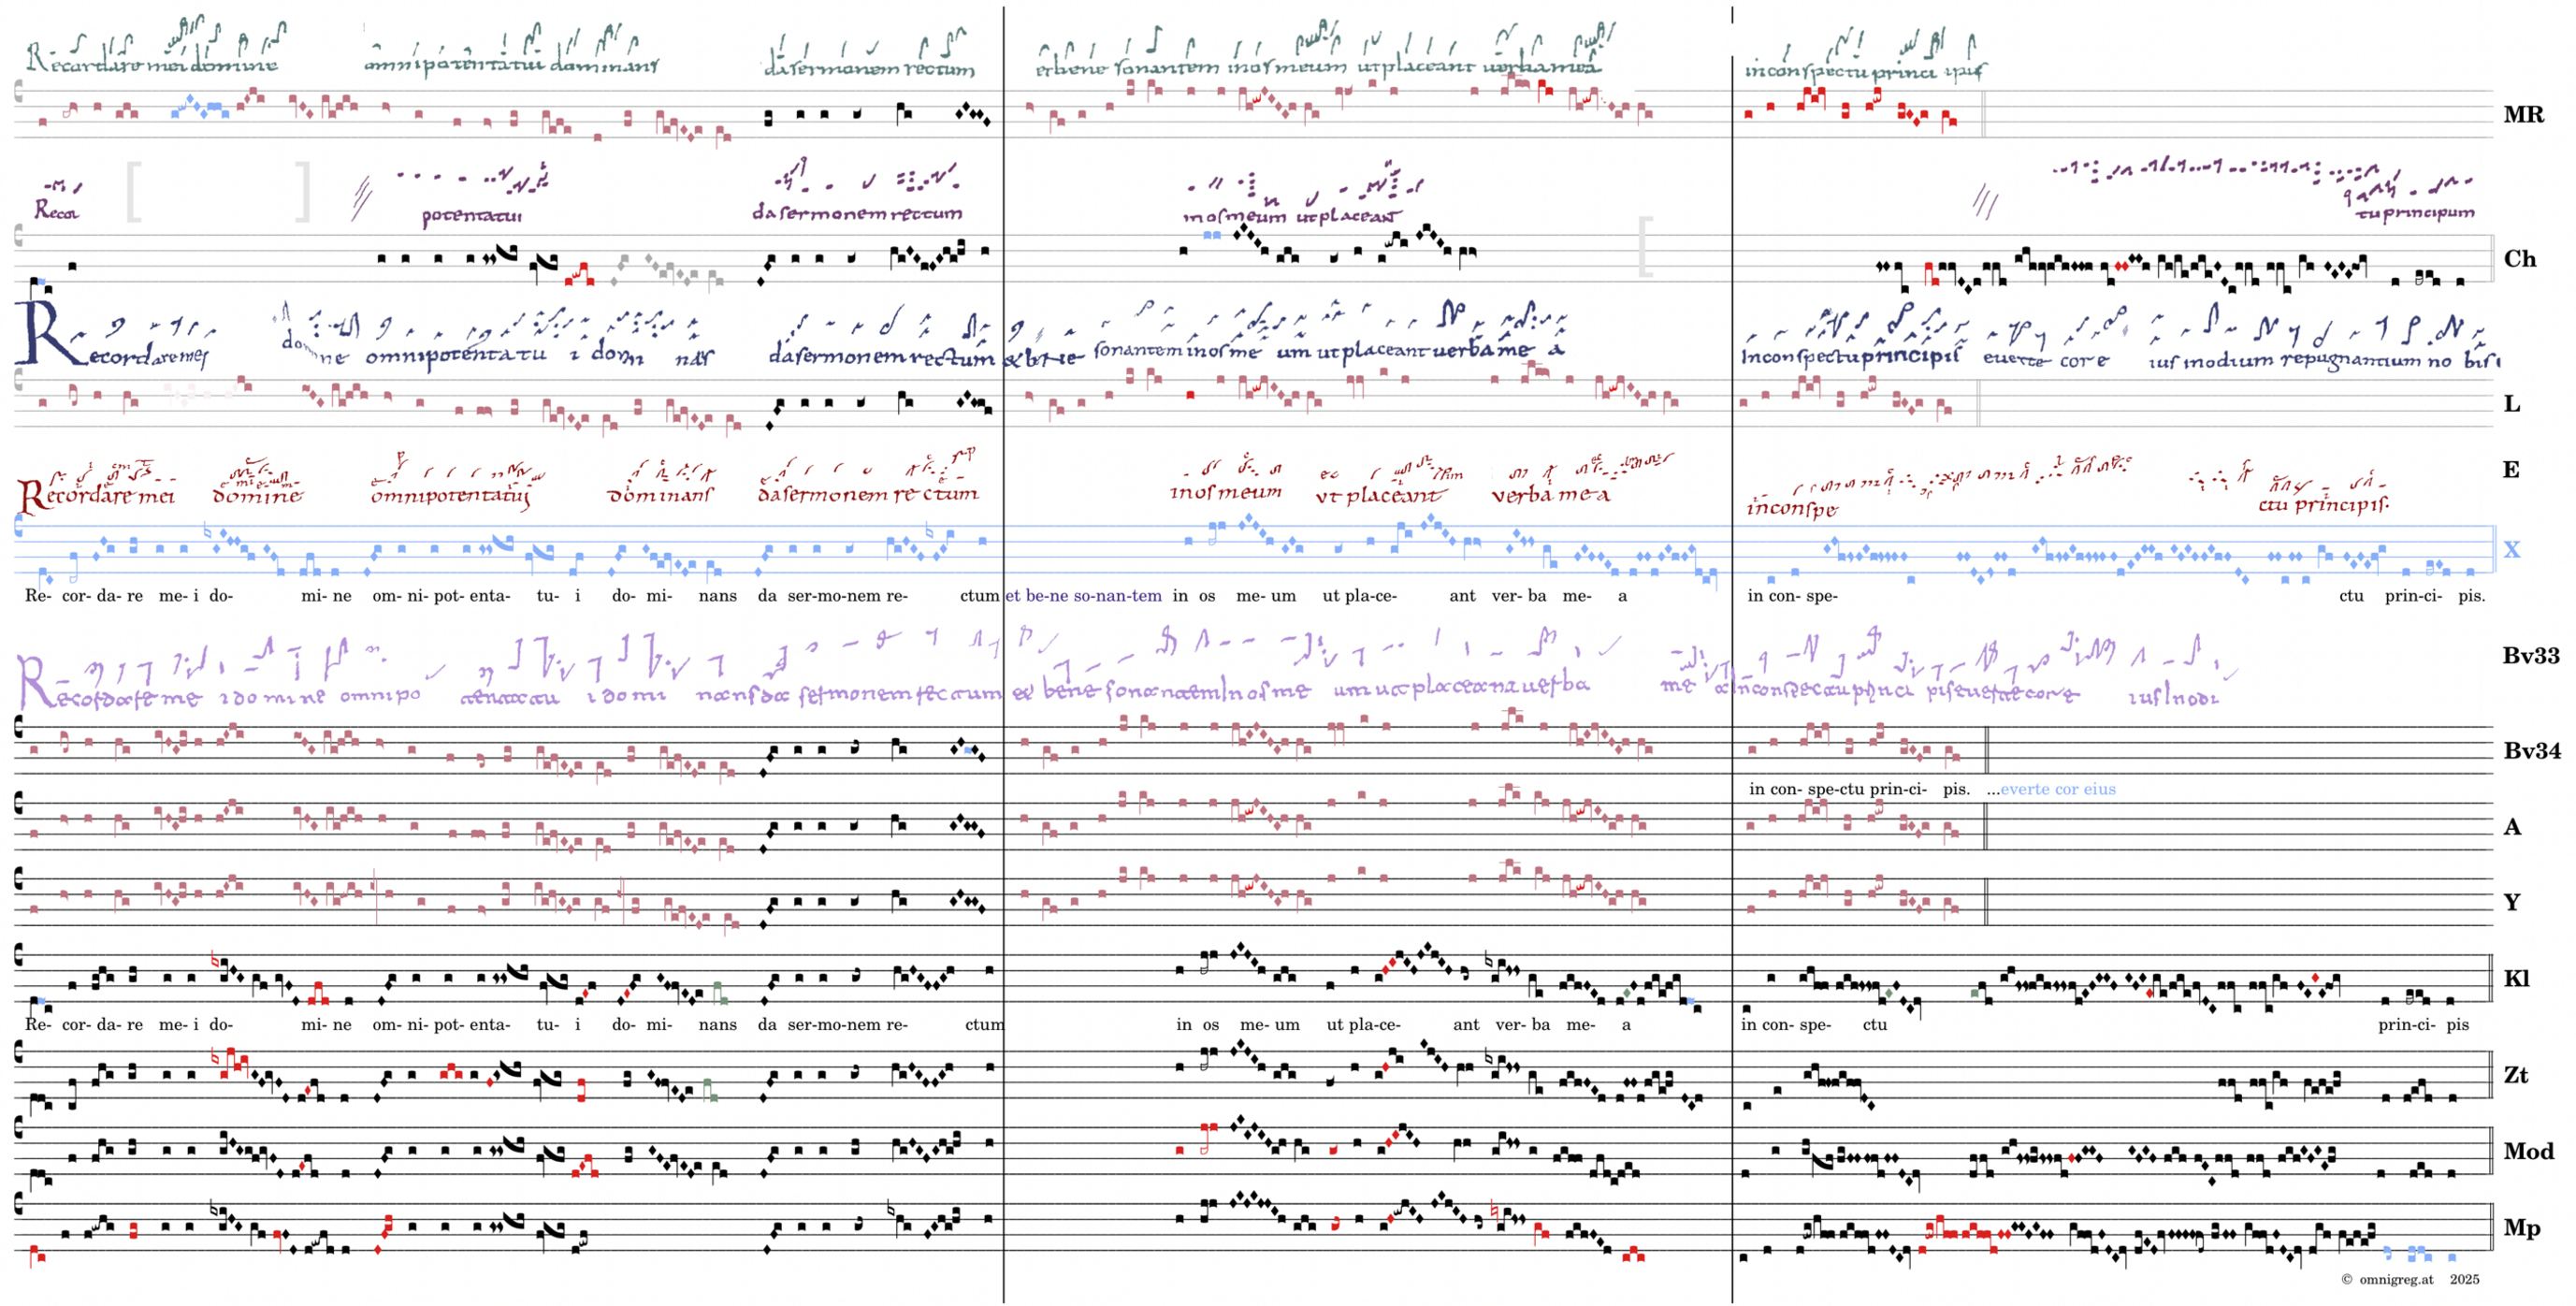 Recordare mei domine omnipotentatui dominans da sermonem rectum et bene sonantem inos meum ut placeant verba mea inconspectu principis
MR
Recor potentatui da sermonem rectum inos meum ut placeant tu principum
Ch
Recordare mei domine omnipotentatu i domi nans da sermonem rectum & bene sonantem inos me um ut placeant verba me a In conspectu principis everte cor e ius inodium repugnantium no bis
L
Recordare mei domine omnipotentatui dominans da sermonem rectum inos meum vt placeant verba mea inconspe ctu principis.
E
X
Re- cor- da- re me- i do- mi- ne om- ni- pot- enta- tu- i do- mi- nans da ser-mo-nem re- ctum et be-ne so-nan-tem in os me- um ut pla-ce- ant ver- ba me- a in con- spe- ctu prin-ci- pis.
Recordare me i domine omnipo tentatu i domi nans da sermonem rectum et bene sonantem In os me um ut placeant verba me a Inconspectu principis everte cor e ius Inodi
Bv33
Bv34
in con- spe-ctu prin-ci- pis. ...everte cor eius
A
Y
Kl
Re- cor- da- re me- i do- mi- ne om- ni- pot- enta- tu- i do- mi- nans da ser-mo-nem re- ctum in os me- um ut pla-ce- ant ver- ba me- a in con- spe- ctu prin-ci- pis
Zt
Mod
Mp
© omnigreg.at 2025